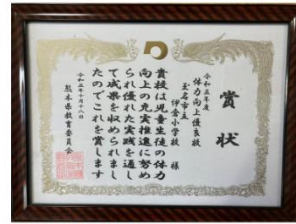 賞状
令和五年度
体力向上優良校
玉名市立
伊倉小学校 様
貴校は児童生徒の体力
向上の充実推進に努め
られ優れた実践を通し
て成果を収められまし
たのでこれを賞します
令和五年十月十八日
熊本県教育委員会